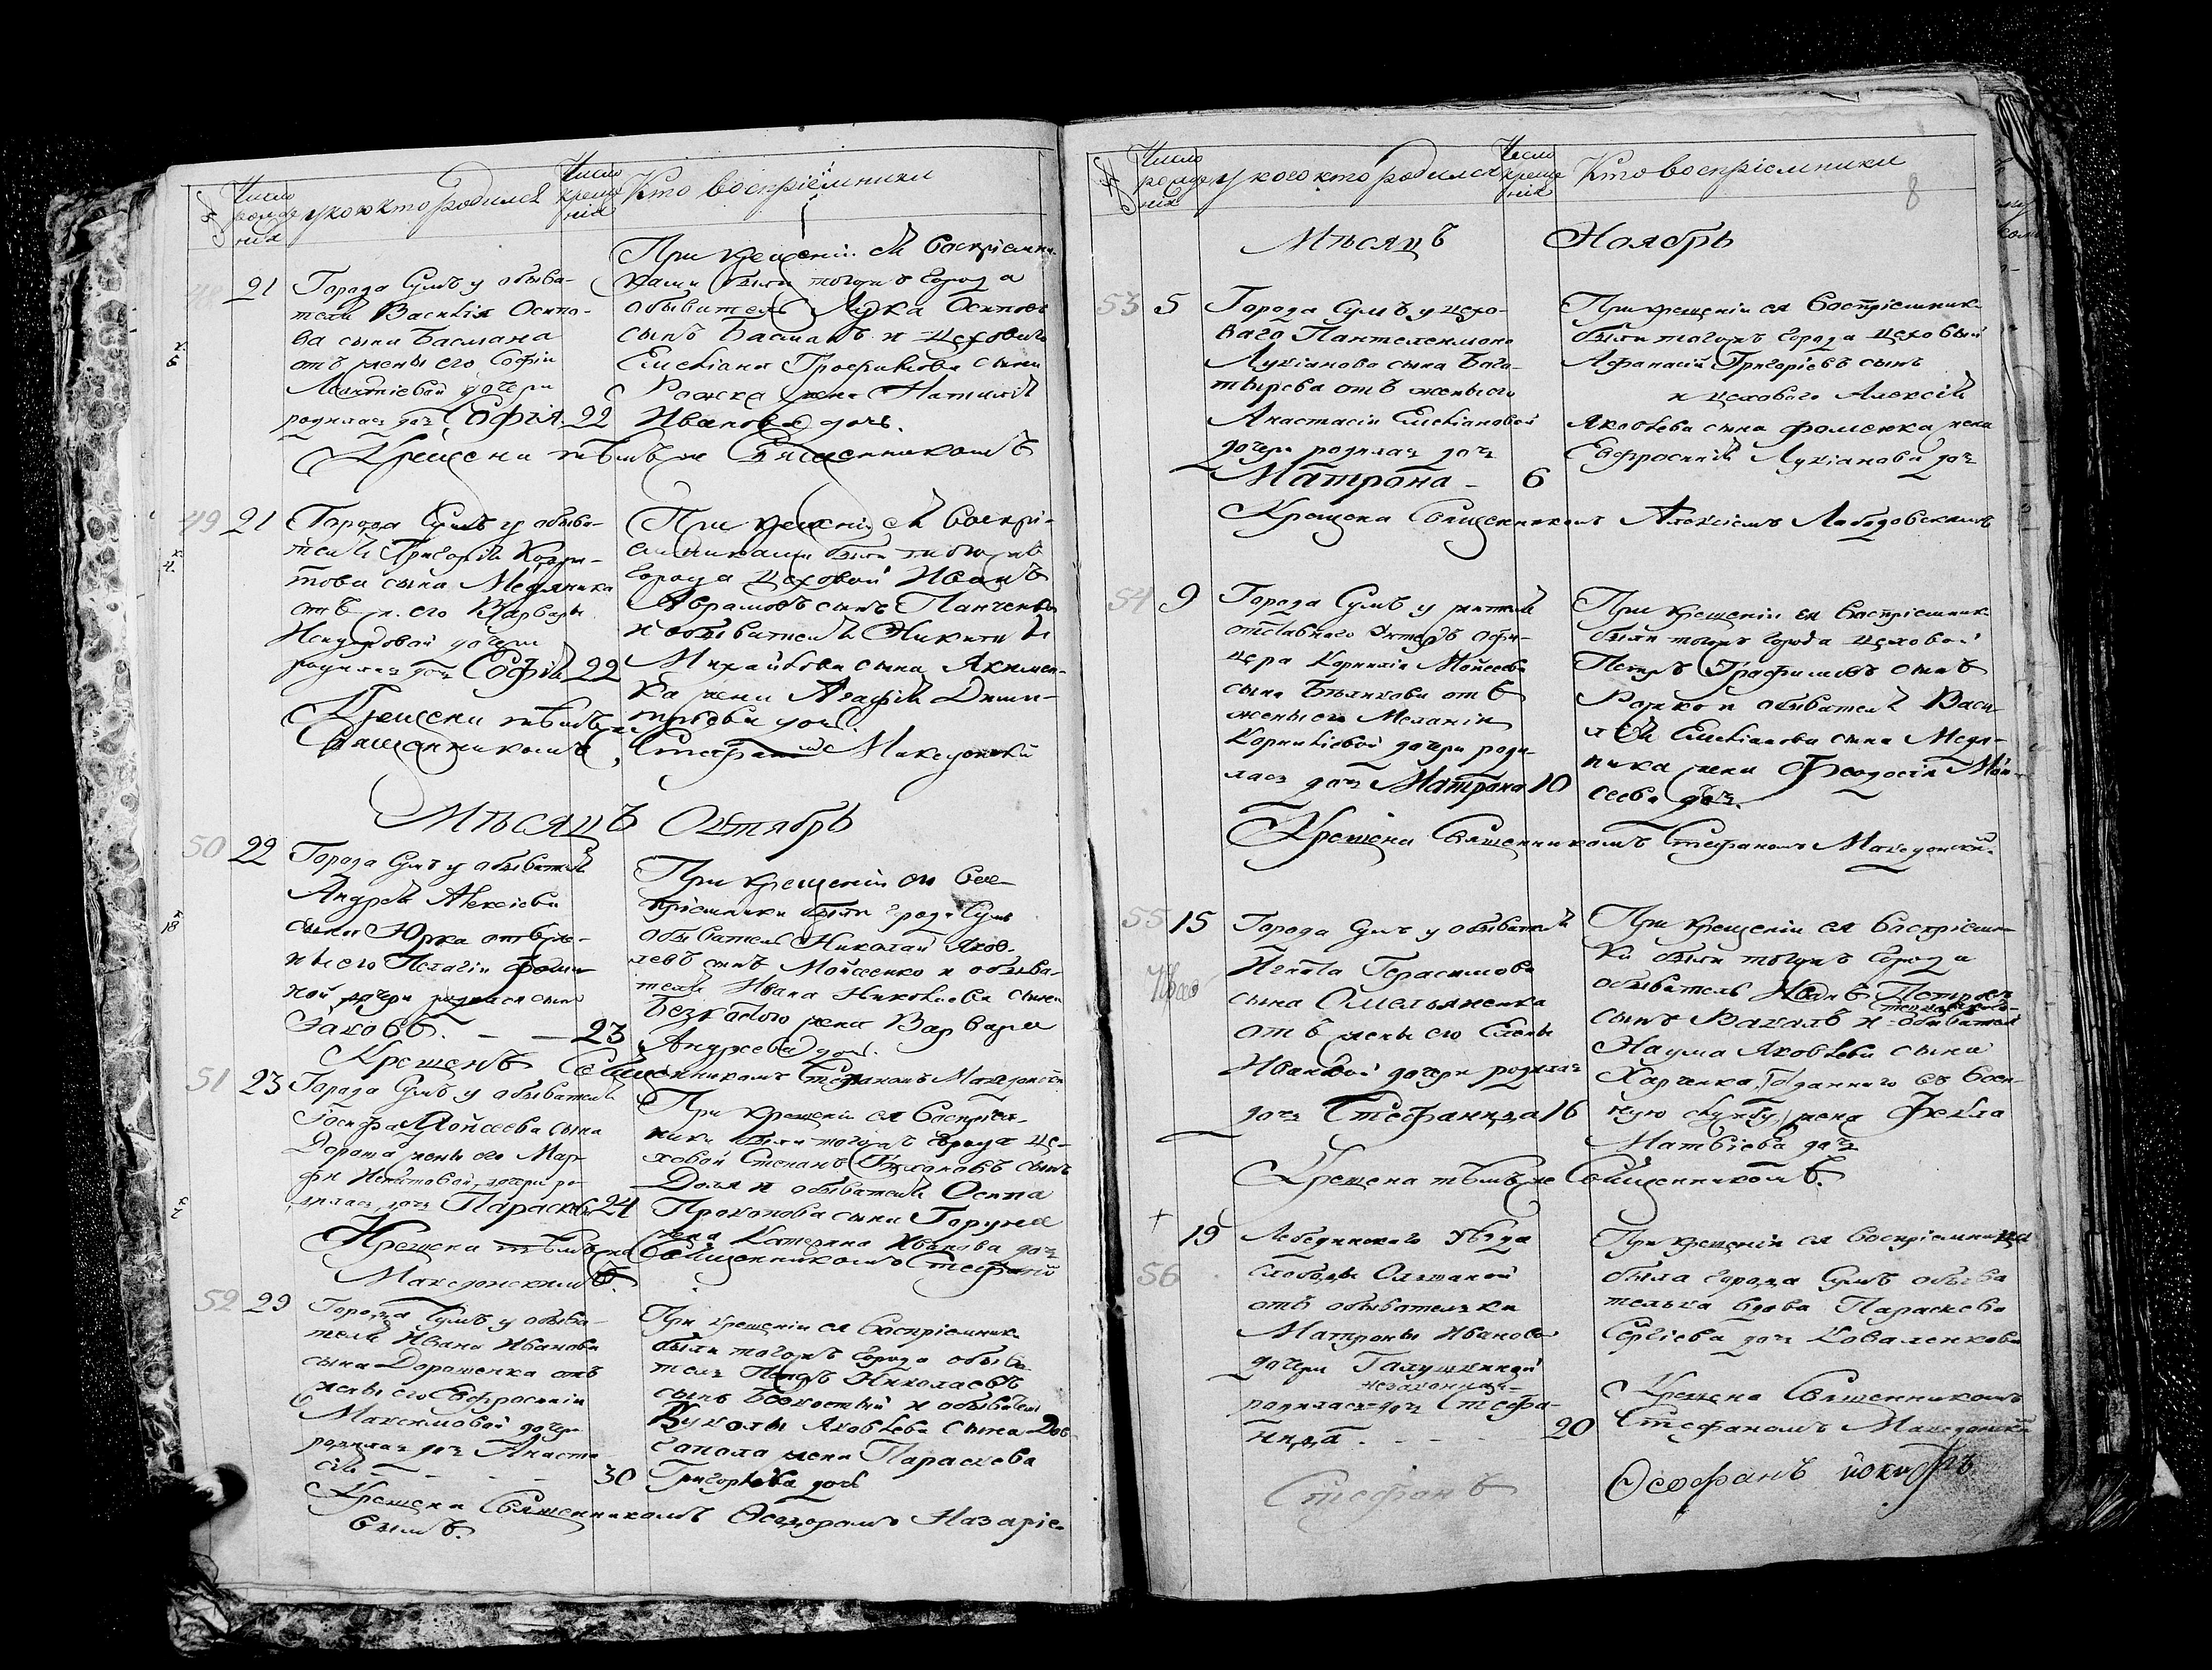 №
Число рожде нія
у кого кто родился
Число креще нія
Кто воспріемники
48 21
Города Сумъ у обыва-
теля Василія Осипо-
ва сына Басмана
отъ жены его Софіи
Леонтіевой дочери
родилась дочь Софія 22
При крещеніи ей воспріемни-
ками были того жъ города
обыватель Лука Осиповъ
сынъ Басманъ и цеховаго
Емеліана Трофимова сына
Рожка жена Наталія
Иванова дочь.
Крещена тѣмъ же Священникомъ
49 21
Города Сумъ у обыва-
теля Григорія Кодра-
това сына Медяника
отъ ж. его Варвары
дочери
родилась дочь Софія 22
При крещеніи ей воспрі-
емниками были того жъ
города цеховой Иванъ
Абрамовъ сынъ Панченко
и обывателя Никиты
Михайлова сына Якимен-
ка жена Агафія Дими-
тріева дочь.
Крещена тѣмъ же
Священникомъ, Стефаномъ Македонскій
Мѣсяцъ Октябрь
50 22
Города Сумъ у обывателя
Андрея Алексіева
сына Юрка отъ же-
ны его Пелагіи Фоми-
ной дочери родился сынъ
Іаковъ. — — 23
При крещеніи он вос-
пріемники были града Сумъ
обыватель Николай Яков-
левъ сынъ Мойсеенко и обыва-
теля Ивана Николаева сына
Безкостого жена Варвара
Андреева дочь.
Крещенъ Священникомъ Стефаномъ Македонски
51 23
Города Сумъ у обывателя
Іосифа Мойсеева сына
Дороша жены его Мар-
фи дочери ро-
дилась дочь Параскева 24
При крещеніи ея воспріем-
ники были того жъ города це-
ховой Степанъ Тихоновъ сынъ
Доля и обывателя Осипа
Прокопова сына Горуна
жена Катерина Иванова дочь
Крещена тѣмъ же Священникомъ Стефано
Македонскимъ.
52 29
Города Сумъ у обыва-
теля Ивана Иванова
сына Дорошенка отъ
жены его Евфросиніи
Максимовой дочери
родилась дочь Анаста-
сія - - - - 30
При крещеніи ея воспріемник
были того жъ города обыва
тель Николаевъ
сынъ Безкостый и обывателя
Вуколы Яковлева сына Дов-
гопола жена Параскева
Григорьева дочь
Крещена Священникомъ Ѳеодоромъ Назаріе-
вымъ.
№
Число рожде нія
у кого кто родился
Число креще нія
Кто воспріемники
8
Мѣсяцъ Ноябрь
53 5
Города Сумъ у цехо-
ваго Пантелеимона
Лукіанова сына Бага-
тырева отъ жены его
Анастасіи Емеліановой
дочери родилась дочь
Матрона - 6
При крещеніи ея воспріемник
были того жъ города цеховый
Афанасій Григоріевъ сынъ
и цехового Алексія
Яковлева сына Фоменка жена
Евфросинія Лукіанова дочь
Крещена Священникомъ Алексіемъ Лободовскимъ
54 9
Города Сумъ у жителя
отставнаго Унтеръ офи-
цера Корнилія Мойсеева
сына Бѣликова отъ
жены его Меланіи
Корниліевой дочери роди-
лась дочь Матрона 10
При крещеніи ея воспріемник
были того жъ города цеховой
Петръ Трофимовъ сынъ
Рожко и обывателя Васи-
лія Емеліанова сына Медя-
ника жена Феодосія Мой-
сеева дочь.
Крещена Священникомъ Стефаномъ Македонскій.
55 15
Города Сумъ у обывателя
Игната Герасимова
сына Омельяненка
отъ жены его Елены
Ивановой дочери родилась
дочь Стефанида 16
При крещеніи ея воспріемни-
ки были того жъ города
обыватель Иванъ Петровъ
сынъ Вакалъ и обывателя
Наума Яковлева сына
Харченка, отданного въ воен-
ную службу, жена Фекла
Матвѣева дочь
Крещена тѣмъ же Священникомъ.
56 19
Лебединского уѣзда
слободы Ольшаной
отъ обывательки
Матроны Ивановой
дочери Галушкиной
незаконная
родилась дочь Стефа-
нида. - - - - 20
При крещеніи ея воспріемница
была города Сумъ обыва
телька вдова Параскева
Сергіева дочь Коваленкова
Крещена Священникомъ
Стефаномъ Македонски
Стефанъ
Ѳеофанъ